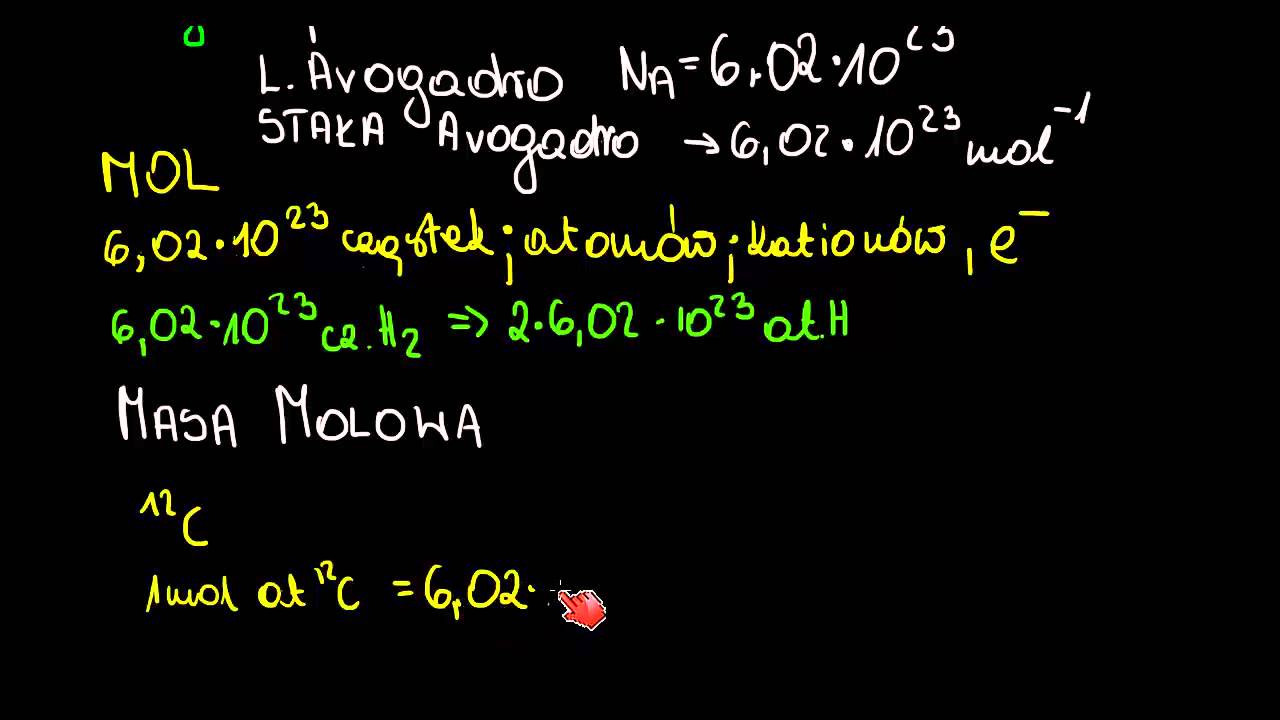 L. Avogadro NA = 6,02·10²³
STAŁA Avogadro → 6,02·10²³ mol⁻¹
MOL
6,02·10²³ cząstek; atomów; kationów, e⁻
6,02·10²³ cz. H₂ ⇒ 2·6,02·10²³ at. H
MASA MOLOWA
¹²C
1 mol at ¹²C = 6,02·